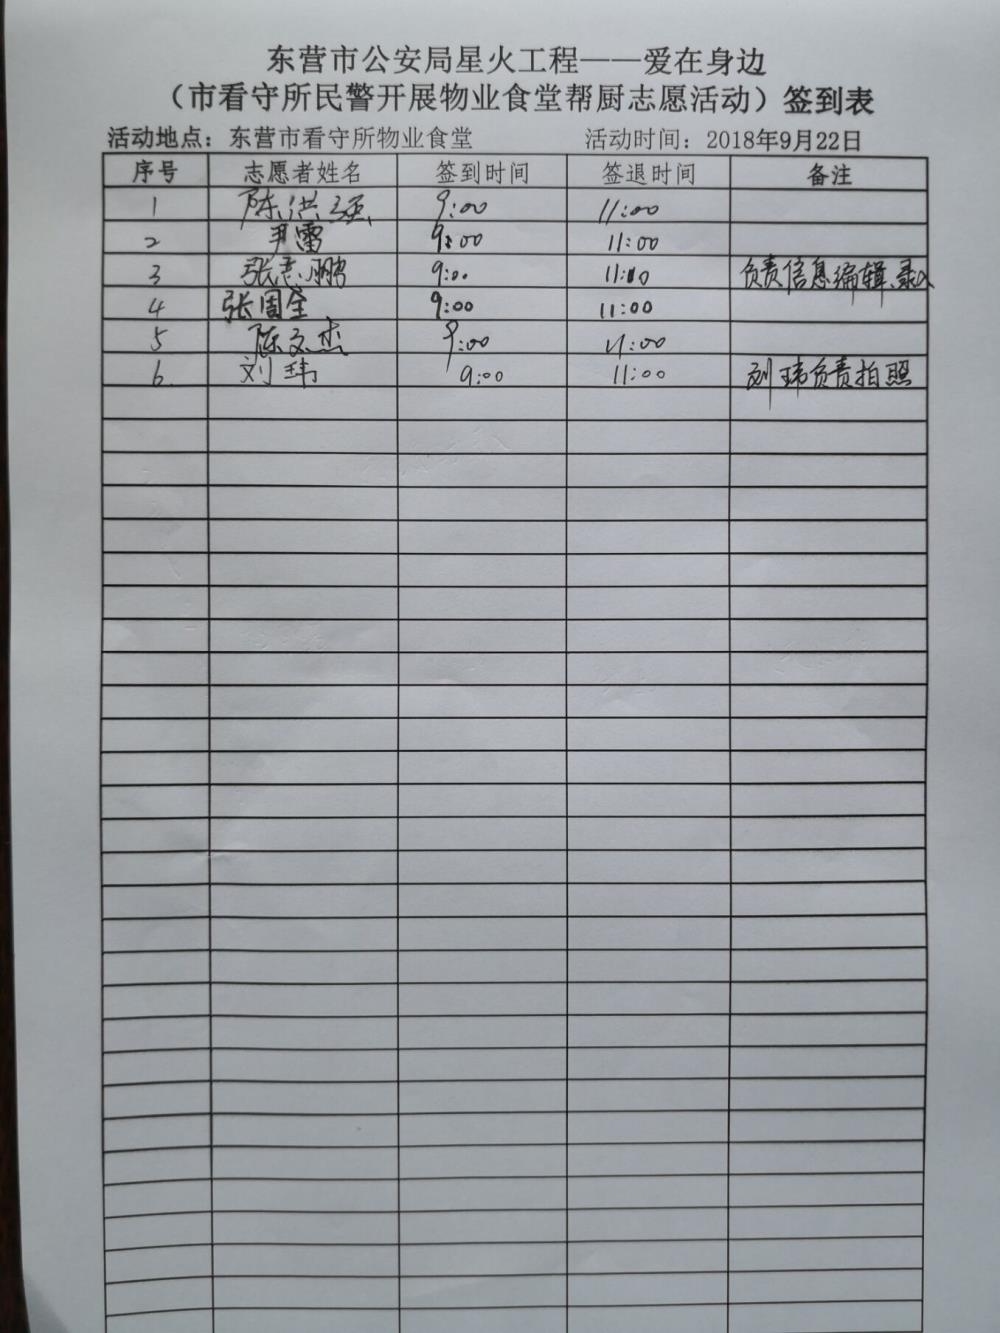 东营市公安局星火工程——爱在身边
（市看守所民警开展物业食堂帮厨志愿活动）签到表
活动地点：东营市看守所物业食堂 活动时间：2018年9月22日
序号 志愿者姓名 签到时间 签退时间 备注
1 陈洪强 9:00 11:00
2 尹雷 9:00 11:00
3 张志鹏 9:00 11:00 负责信息编辑、录入
4 张周全 9:00 11:00
5 陈文杰 9:00 11:00
6 刘玮 9:00 11:00 刘玮负责拍照